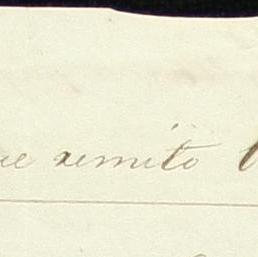 ue remito